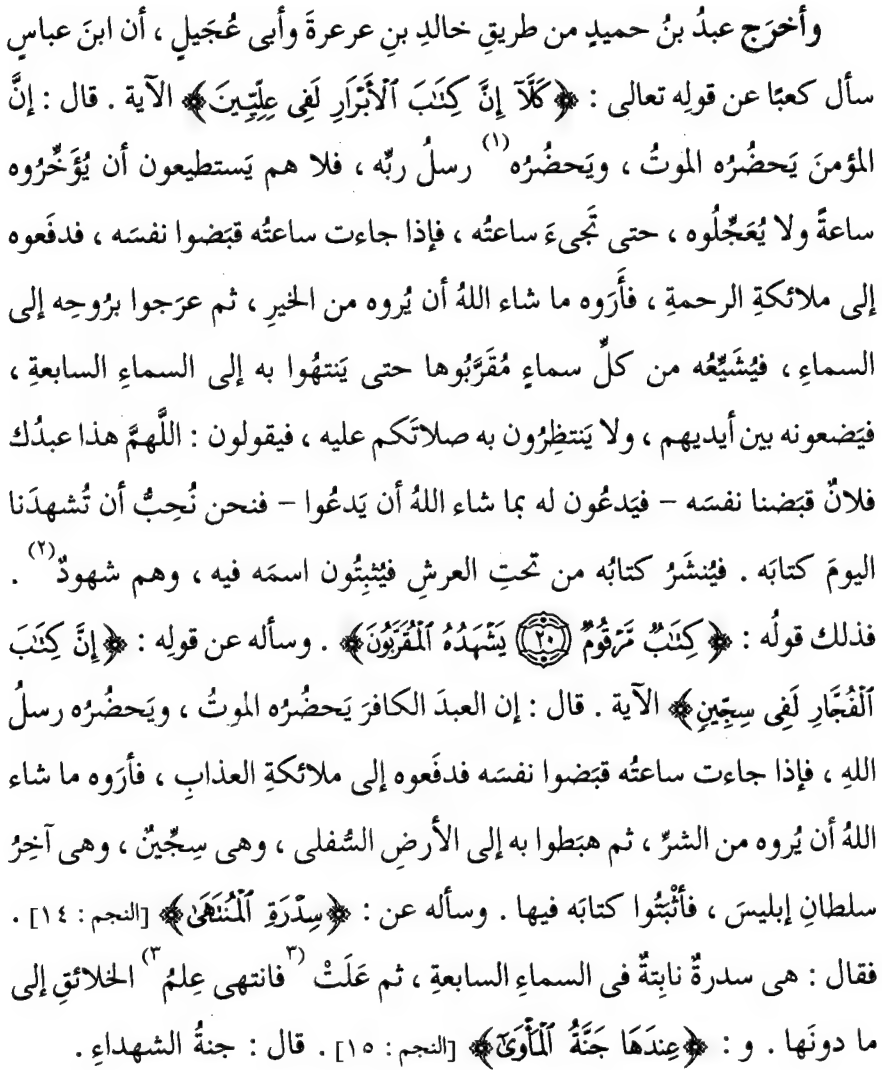 وأخرَج عبدُ بنُ حميدٍ من طريقِ خالدِ بنِ عرعرةَ وأبى عُجَيلٍ ، أن ابنَ عباسٍ
سأل كعبًا عن قولِه تعالى : ﴿كَلَّآ إِنَّ كِتَٰبَ ٱلْأَبْرَارِ لَفِى عِلِّيِّينَ﴾ الآية . قال : إنَّ
المؤمنَ يَحضُرُه الموتُ ، ويَحضُرُه(١) رسلُ ربِّه ، فلا هم يَستطيعون أن يُؤَخِّرُوه
ساعةً ولا يُعَجِّلُوه ، حتى تَجىءَ ساعتُه ، فإذا جاءت ساعتُه قبَضوا نفسَه ، فدفَعوه
إلى ملائكةِ الرحمةِ ، فأَرَوه ما شاء اللهُ أن يُروه من الخيرِ ، ثم عرَجوا برُوحِه إلى
السماءِ ، فيُشَيِّعُه من كلِّ سماءٍ مُقَرَّبُوها حتى يَنتهُوا به إلى السماءِ السابعةِ ،
فيَضعونه بين أيديهم ، ولا يَنتظِرُون به صلاتَكم عليه ، فيقولون : اللَّهمَّ هذا عبدُك
فلانٌ قبَضنا نفسَه – فيَدعُون له بما شاء اللهُ أن يَدعُوا – فنحن نُحِبُّ أن تُشهدَنا
اليومَ كتابَه . فيُنشَرُ كتابُه من تحتِ العرشِ فيُثبِتُون اسمَه فيه ، وهم شهودٌ(٢) .
فذلك قولُه : ﴿كِتَٰبٌ مَّرْقُومٌ ۝٢٠ يَشْهَدُهُ ٱلْمُقَرَّبُونَ﴾ . وسأله عن قولِه : ﴿إِنَّ كِتَٰبَ
ٱلْفُجَّارِ لَفِى سِجِّينٍ﴾ الآية . قال : إن العبدَ الكافرَ يَحضُرُه الموتُ ، ويَحضُرُه رسلُ
اللهِ ، فإذا جاءت ساعتُه قبَضوا نفسَه فدفَعوه إلى ملائكةِ العذابِ ، فأرَوه ما شاء
اللهُ أن يُروه من الشرِّ ، ثم هبَطوا به إلى الأرضِ السُّفلى ، وهى سِجِّينٌ ، وهى آخِرُ
سلطانِ إبليسَ ، فأثْبَتُوا كتابَه فيها . وسأله عن : ﴿سِدْرَةِ ٱلْمُنتَهَىٰ﴾ [النجم : ١٤] .
فقال : هى سدرةٌ نابِتةٌ فى السماءِ السابعةِ ، ثم عَلَتْ (٣فانتهى عِلمُ٣) الخلائقِ إلى
ما دونَها . و : ﴿عِندَهَا جَنَّةُ ٱلْمَأْوَىٰٓ﴾ [النجم : ١٥] . قال : جنةُ الشهداءِ .